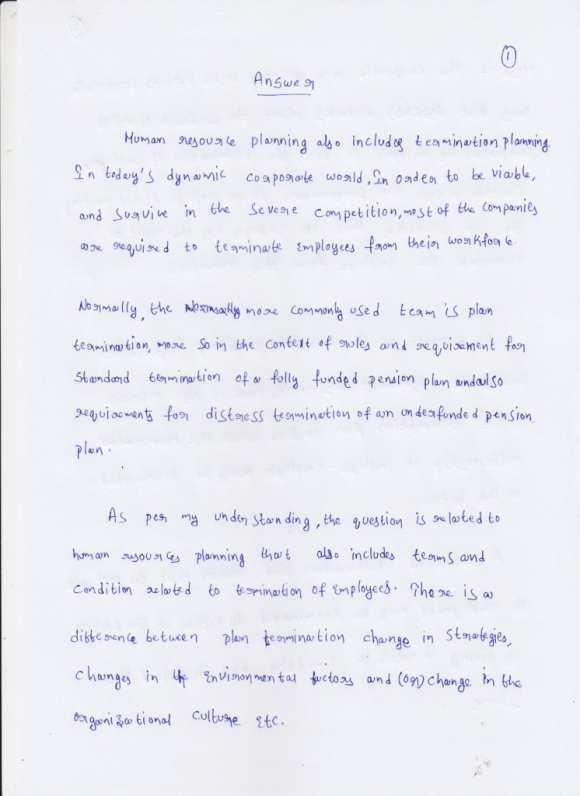 1
Answer
Human resource planning also includes termination planning
In today's dynamic corporate world, In order to be viable,
and survive in the severe competition, most of the companies
are required to terminate employees from their workforce.
Normally, the more commonly used term is plan
termination, more so in the context of rules and requirement for
standard termination of a fully funded pension plan and also
requirements for distress termination of an underfunded pension
plan.
As per my understanding, the question is related to
human resources planning that also includes terms and
condition related to termination of employees. There is a
difference between plan termination change in strategies,
changes in the environmental factors and (or) change in the
organizational culture etc.